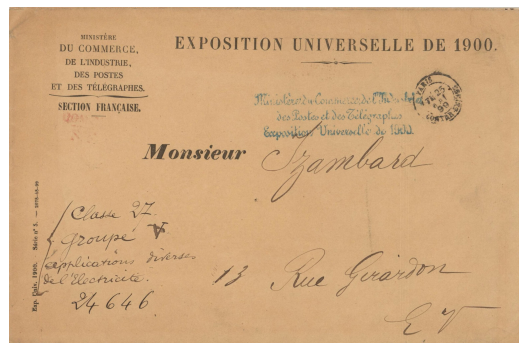 MINISTÈRE
DU COMMERCE,
DE L'INDUSTRIE,
DES POSTES
ET DES TÉLÉGRAPHES.
SECTION FRANÇAISE.
EXPOSITION UNIVERSELLE DE 1900.
Ministère du Commerce, de l'Industrie
des Postes et des Télégraphes
Exposition Universelle de 1900.
PARIS
Monsieur Izambard
Classe 27
Groupe V
applications diverses
de l'Electricité.
24646
13 Rue Girardon
E V
Exp. Univ. 1900. Série n° 5.